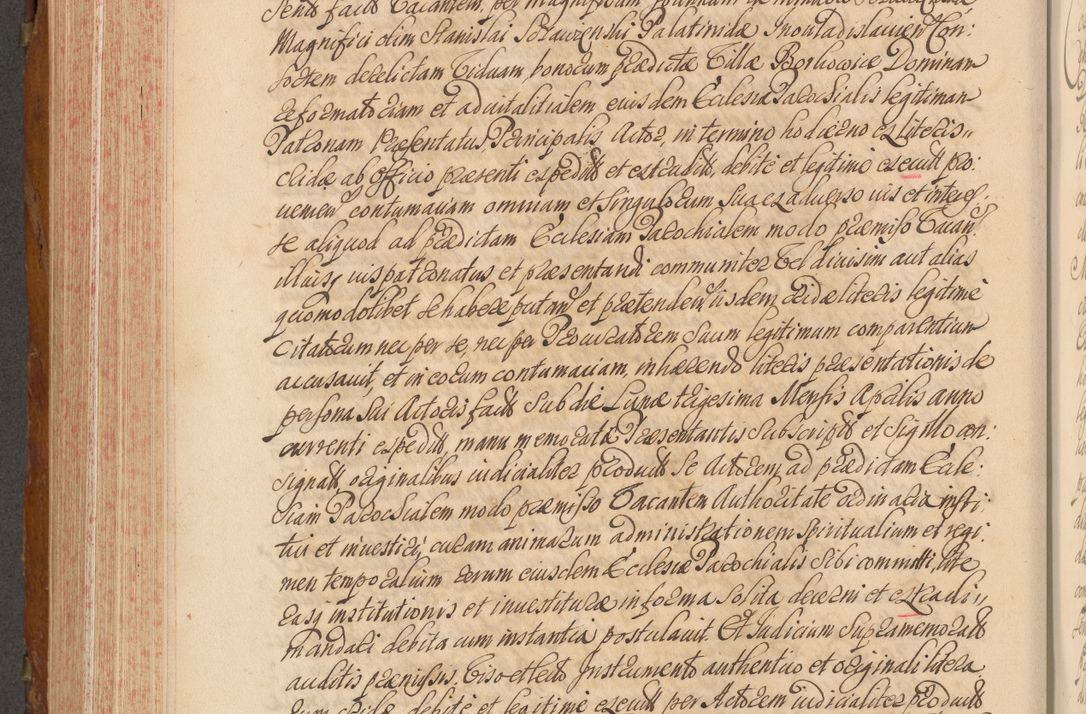 Magnifici olim Stanislai Szławzenski Palatinidæ Inowladislavien Con:
sortem derelictam Viduam bonorum prædictæ Villæ Borkowicæ Dominam
reformatoriam et advitalitialem eiusdem Ecclesiæ Parochialis legitimam
Patronam Præsentatus Principalis Actor, in termino hodierno ex Literis
cridæ ab Officio præsenti expeditis et extraditis, debite et legitime executis pro:
venien contumaciam omnium et singulorum sua ex adverso ius et interes-
se aliquod ad prædictam Ecclesiam Parochialem modo præmisso Vacan
illiusq iuspatronatus et præsentandi communiter vel divisim aut alias
quomodolibet se habere putan et prætenden iisdem cridæ literis legitime
Citatorum nec per se, nec per Procuratorem suum legitimum comparentium
accusavit, et in eorum contumaciam, inhærendo literis præsentationis de
persona sui Actoris factis sub die Lunæ trigesima Mensis Aprilis anno
currenti expeditis, manu memoratæ Præsentantis subscriptis et sigillo con:
signatis originalibus iudicialiter productis se Actorem ad prædictam Eccle:
siam Parochialem modo præmisso Vacantem Authoritate ordinaria insti:
tui et investiri, curam animarum administrationem spiritualium et regi:
men temporalium rerum eiusdem Ecclesiæ Parochialis sibi committi, lite
rasq institutionis et investituræ in forma solita decerni et extradi
mandari debita cum instantia postulavit. Et Iudicium supramemoratis
auditis præmissis. Viso et lecto Instrumento authentico et originali litera
rum cridæ debite et legitime executis per Actorem iudicialiter productis